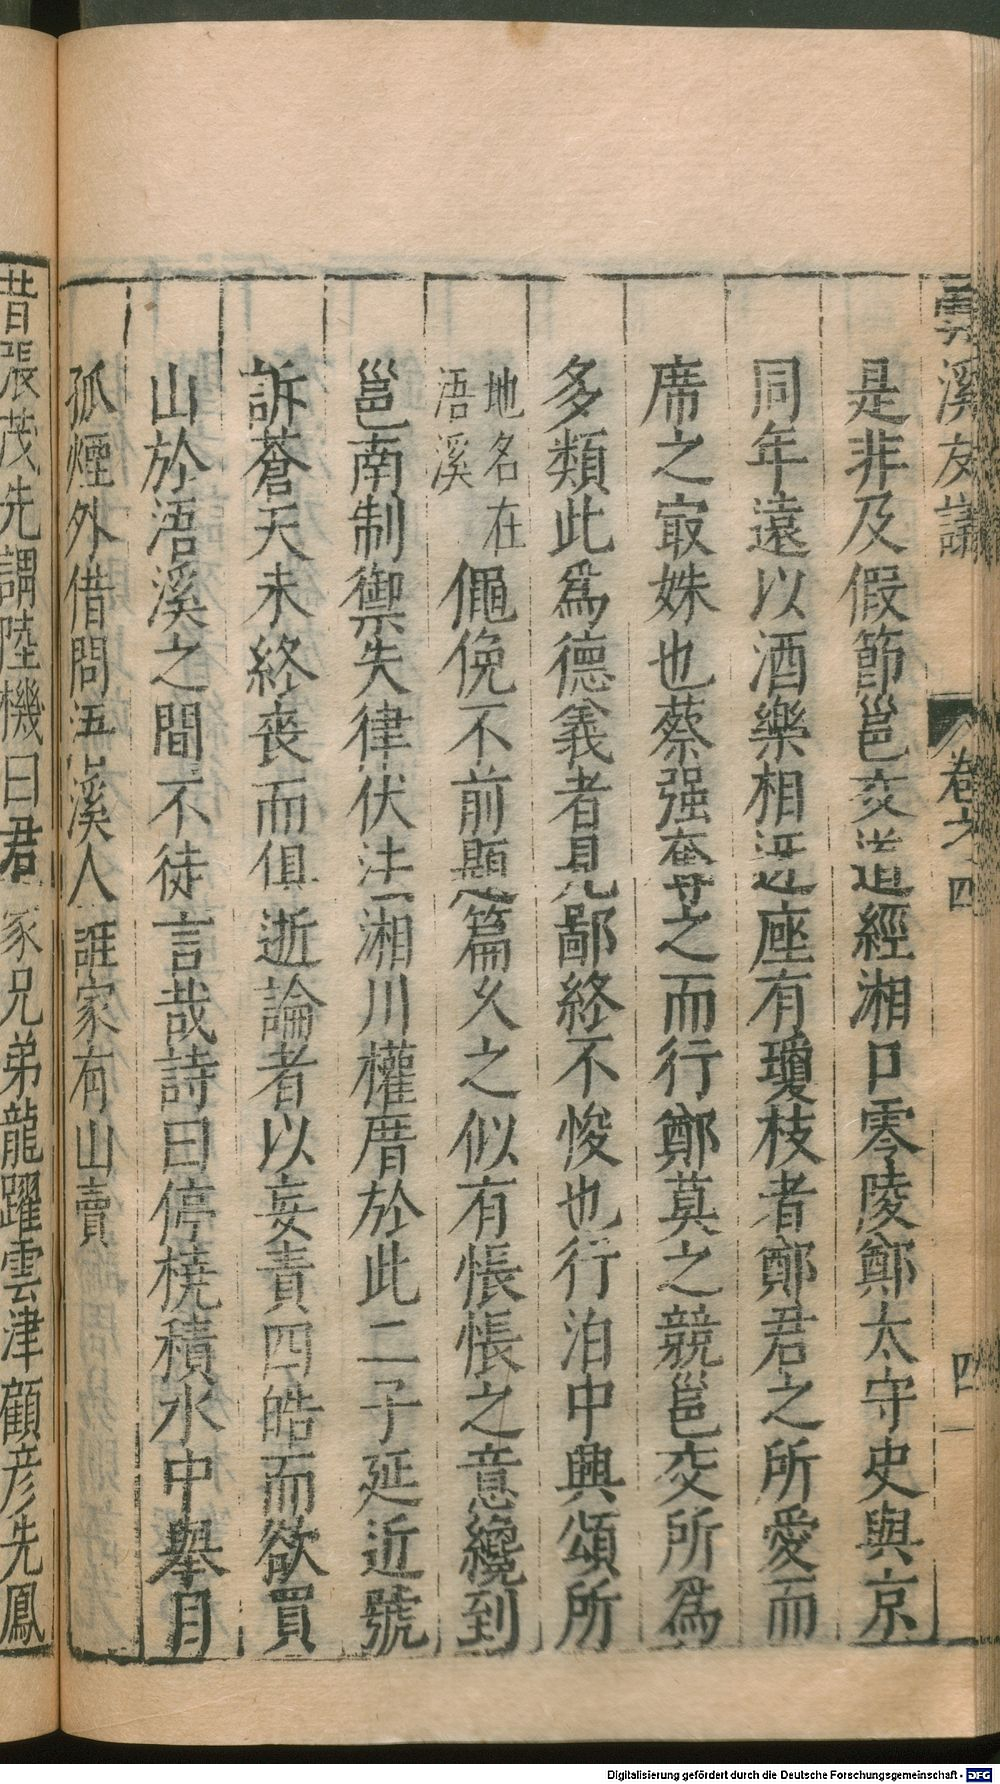 雲溪友議 卷之四 四
是非及假節邕交道經湘口零陵鄭太守史與京
同年遠以酒樂相迓座有瓊枝者鄭君之所愛而
席之㝡姝也蔡强奪之而行鄭莫之競邕交所爲
多類此爲德義者見鄙終不悛也行泊中興頌所
地名在
浯溪
僶俛不前題篇久之似有悵悵之意纔到
邕南制御失律伏法湘川權厝於此二子延近號
訴蒼天未終喪而俱逝論者以妄責四皓而欲買
山於浯溪之間不徒言哉詩曰停橈積水中舉目
孤煙外借問浯溪人誰家有山賣
昔張茂先謂陸機曰君家兄弟龍躍雲津顧彦先鳳
Digitalisierung gefördert durch die Deutsche Forschungsgemeinschaft - DFG